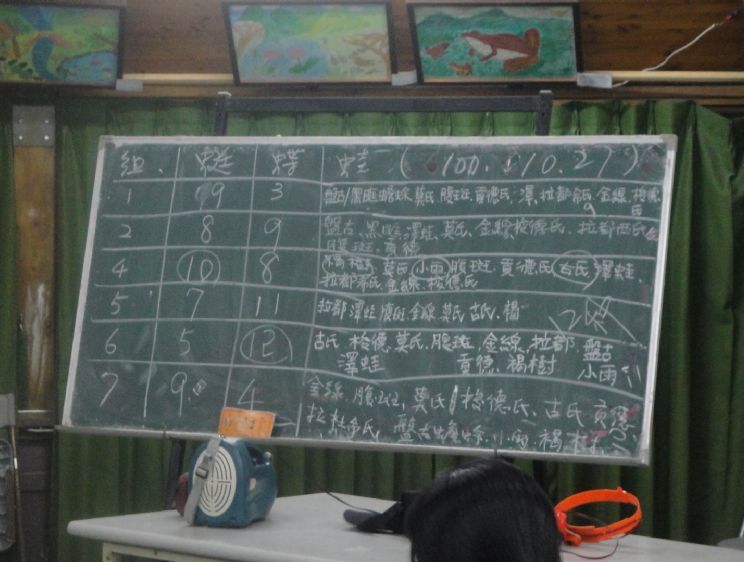 組 蜓 蝶 蛙 (100.10.27)
1 9 3 盤古/黑眶蟾蜍 莫氏 腹斑 貢德氏 澤 拉都希氏 金線 梭德氏
9
2 8 9 盤古 黑眶 澤蛙 莫氏 金線 梭德氏 拉都西氏 古
腹斑 貢德
4 10 8 莫氏 小雨 腹斑 貢德氏 古氏 澤蛙
拉都希氏 金線 梭德氏
5 7 11 拉都 澤蛙 腹斑 金線 莫氏 古氏 褐
6 5 12 古氏 梭德 莫氏 腹斑 金線 拉都 盤古
澤蛙 貢德 褐樹 小雨
7 9 4 金線 腹斑 莫氏 梭德氏 古氏 貢德
拉都希氏 盤古蟾蜍 小雨 褐樹